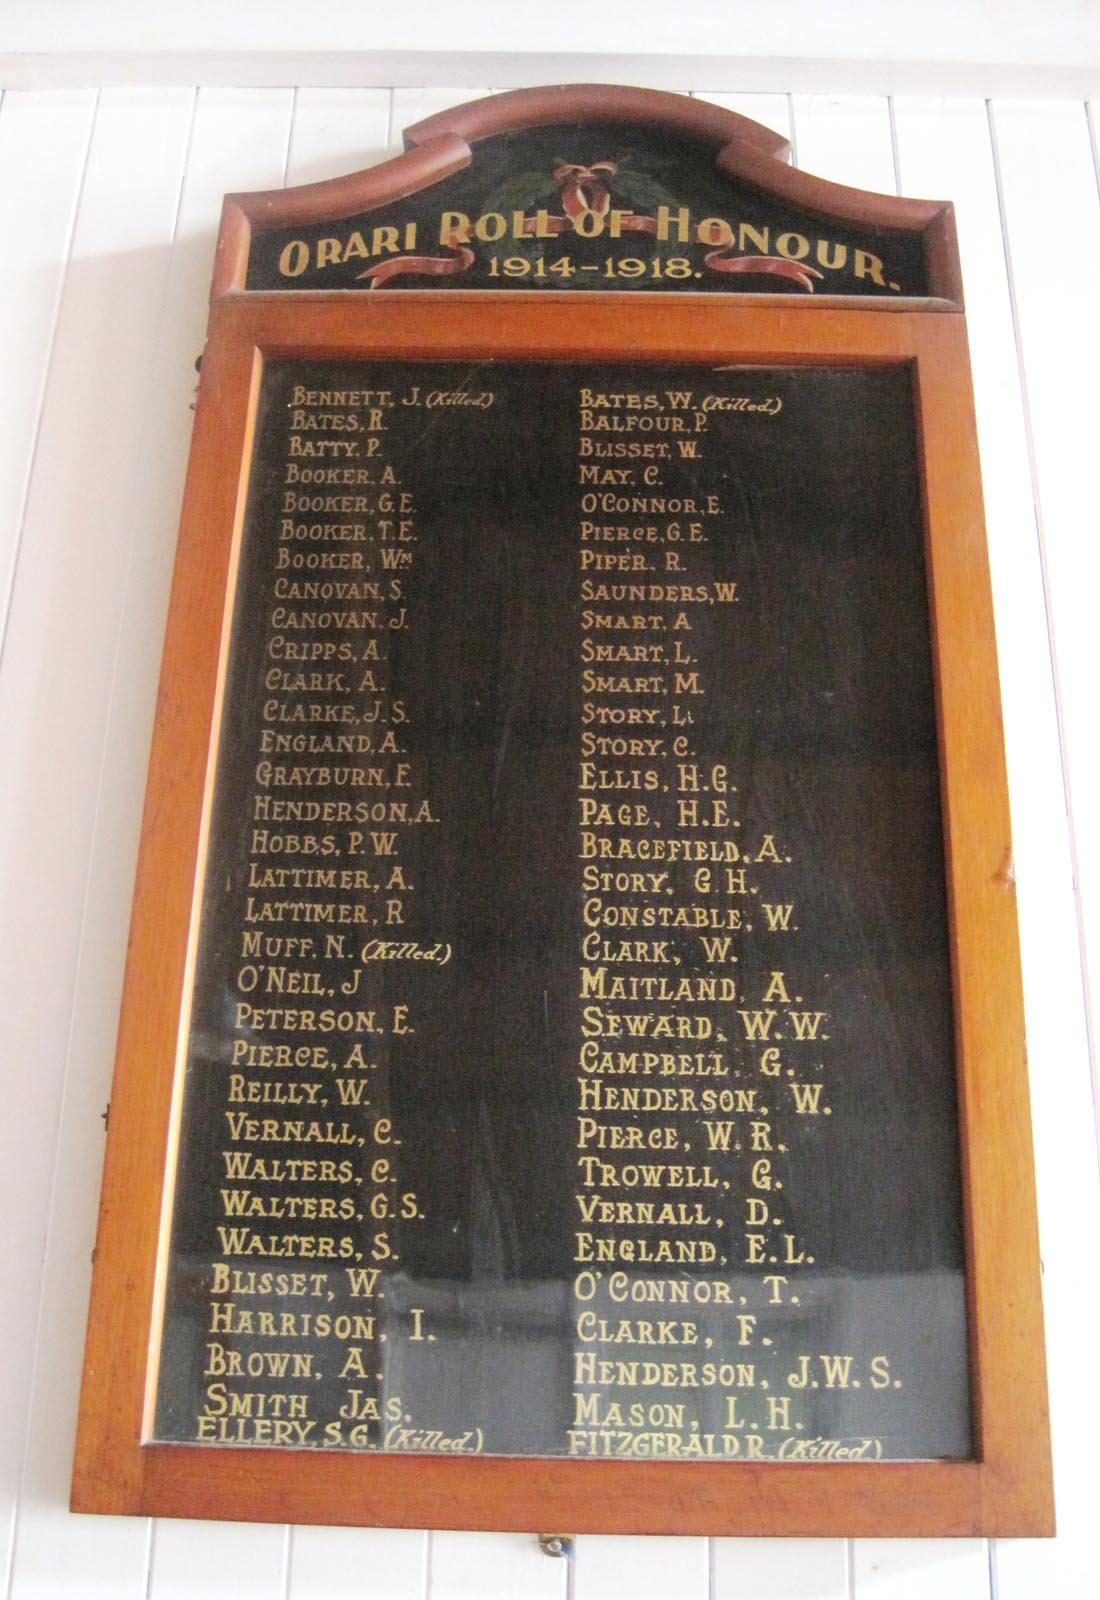 ORARI ROLL OF HONOUR.
1914-1918.
BENNETT, J. (Killed)
BATES, R.
BATTY, P.
BOOKER, A.
BOOKER, G.E.
BOOKER, T.E.
BOOKER, WM.
CANOVAN, S.
CANOVAN, J.
CRIPPS, A.
CLARK, A.
CLARKE, J.S.
ENGLAND, A.
GRAYBURN, F.
HENDERSON, A.
HOBBS, P.W.
LATTIMER, A.
LATTIMER, R
MUFF, N. (Killed.)
O'NEIL, J
PETERSON, E.
PIERCE, A.
REILLY, W.
VERNALL, C.
WALTERS, C.
WALTERS, G.S.
WALTERS, S.
BLISSET, W.
HARRISON, I.
BROWN, A.
SMITH JAS.
ELLERY, S.G. (Killed.)
BATES, W. (Killed.)
BALFOUR, P.
BLISSET, W.
MAY, C.
O'CONNOR, E.
PIERCE, G.E.
PIPER, R.
SAUNDERS, W.
SMART, A
SMART, L.
SMART, M.
STORY, L.
STORY, C.
ELLIS, H.G.
PAGE, H.E.
BRACEFIELD, A.
STORY, G.H.
CONSTABLE, W.
CLARK, W.
MAITLAND, A.
SEWARD, W.W.
CAMPBELL, G.
HENDERSON, W.
PIERCE, W.R.
TROWELL, G.
VERNALL, D.
ENGLAND, E.L.
O'CONNOR, T.
CLARKE, F.
HENDERSON, J.W.S.
MASON, L.H.
FITZGERALD R. (Killed)